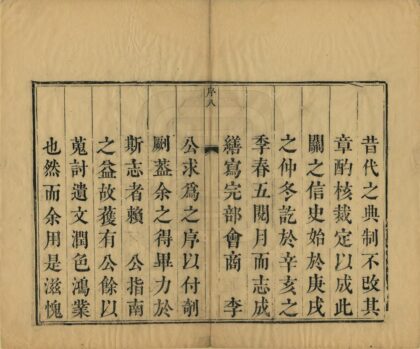 昔代之典制不改其
章酌核裁定以成此
闗之信史始於庚戌
之仲冬訖於辛亥之
季春五閱月而志成
繕寫完部會商　李
序八
公求爲之序以付剞
劂葢余之得畢力於
斯志者賴　公指南
之益故獲有公餘以
蒐討遺文潤色鴻業
也然而余用是滋愧